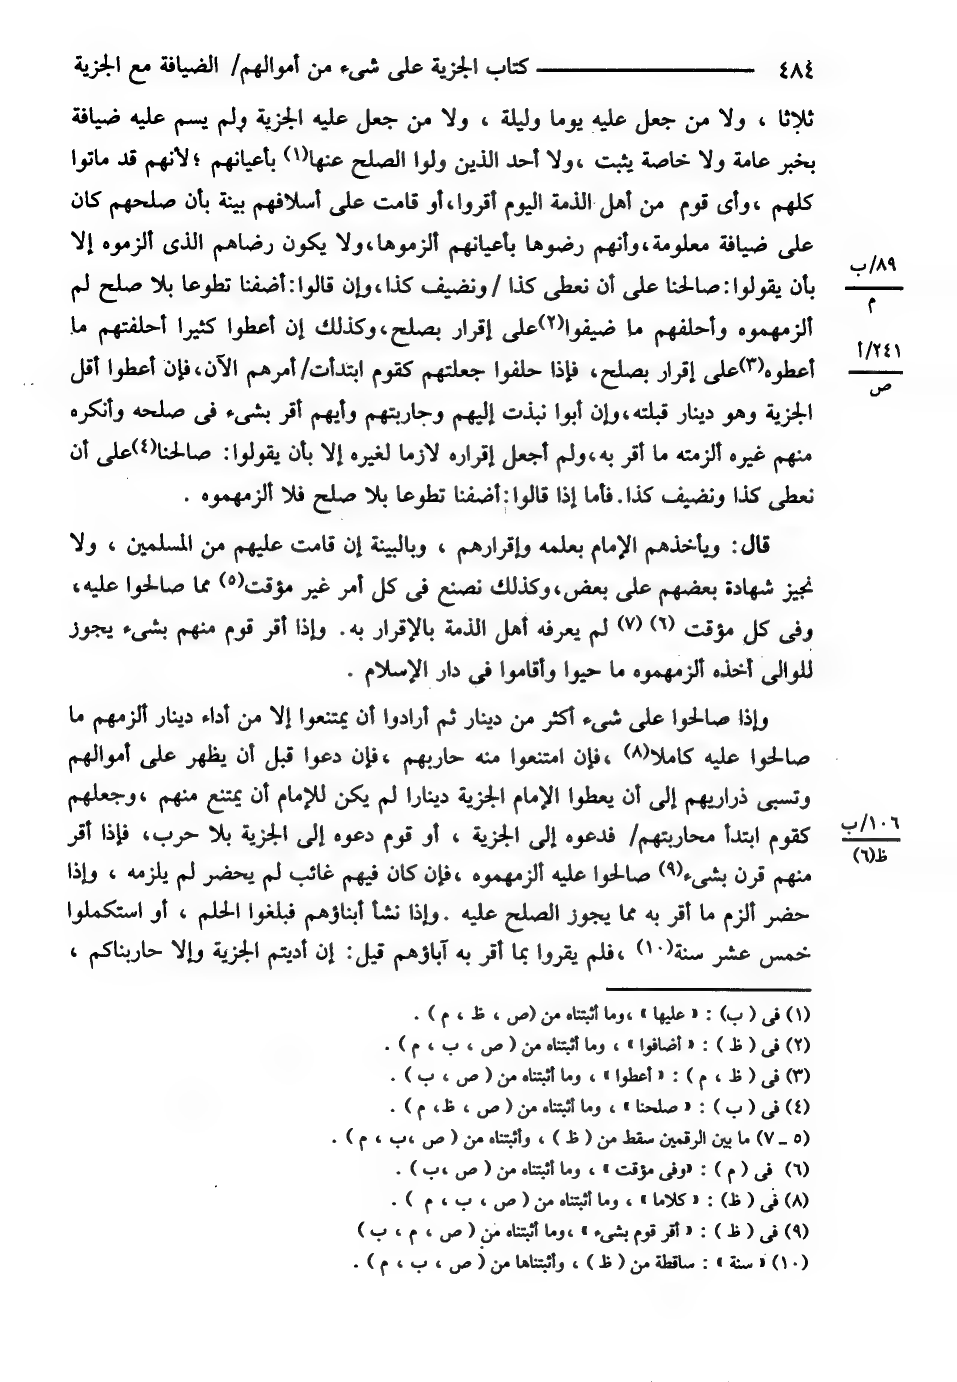 ٤٨٤ ــــــــــــ كتاب الجزية على شىء من أموالهم/ الضيافة مع الجزية
ثلاثا ، ولا من جعل عليه يوما وليلة ، ولا من جعل عليه الجزية ولم يسم عليه ضيافة
بخبر عامة ولا خاصة يثبت ،ولا أحد الذين ولوا الصلح عنها(١) بأعيانهم ؛لأنهم قد ماتوا
كلهم ،وأى قوم من أهل الذمة اليوم أقروا،أو قامت على أسلافهم بينة بأن صلحهم كان
على ضيافة معلومة،وأنهم رضوها بأعيانهم ألزموها،ولا يكون رضاهم الذى ألزموه إلا
٨٩/ب
بأن يقولوا:صالحنا على أن نعطى كذا /ونضيف كذا،وإن قالوا:أضفنا تطوعا بلا صلح لم
م
ألزمهموه وأحلفهم ما ضيفوا(٢)على إقرار بصلح،وكذلك إن أعطوا كثيرا أحلفتهم ما
٢٤١/أ
أعطوه(٣)على إقرار بصلح، فإذا حلفوا جعلتهم كقوم ابتدأت/أمرهم الآن،فإن أعطوا أقل
ص
الجزية وهو دينار قبلته،وإن أبوا نبذت إليهم وحاربتهم وأيهم أقر بشىء فى صلحه وأنكره
منهم غيره ألزمته ما أقر به،ولم أجعل إقراره لازما لغيره إلا بأن يقولوا: صالحنا(٤)على أن
نعطى كذا ونضيف كذا.فأما إذا قالوا:أضفنا تطوعا بلا صلح فلا ألزمهموه .
قال: ويأخذهم الإمام بعلمه وإقرارهم ، وبالبينة إن قامت عليهم من المسلمين ، ولا
نجيز شهادة بعضهم على بعض،وكذلك نصنع فى كل أمر غير مؤقت(٥) مما صالحوا عليه،
وفى كل مؤقت (٦) (٧) لم يعرفه أهل الذمة بالإقرار به. وإذا أقر قوم منهم بشىء يجوز
للوالى أخذه ألزمهموه ما حيوا وأقاموا فى دار الإسلام .
وإذا صالحوا على شىء أكثر من دينار ثم أرادوا أن يمتنعوا إلا من أداء دينار ألزمهم ما
صالحوا عليه كاملا(٨) ،فإن امتنعوا منه حاربهم ،فإن دعوا قبل أن يظهر على أموالهم
وتسبى ذراريهم إلى أن يعطوا الإمام الجزية دينارا لم يكن للإمام أن يمتنع منهم ،وجعلهم
١٠٦/ب
كقوم ابتدأ محاربتهم/ فدعوه إلى الجزية ، أو قوم دعوه إلى الجزية بلا حرب، فإذا أقر
ظ(٦)
منهم قرن بشىء(٩) صالحوا عليه ألزمهموه ،فإن كان فيهم غائب لم يحضر لم يلزمه ، وإذا
حضر ألزم ما أقر به مما يجوز الصلح عليه .وإذا نشأ أبناؤهم فبلغوا الحلم ، أو استكملوا
خمس عشر سنة(١٠) ،فلم يقروا بما أقر به آباؤهم قيل: إن أديتم الجزية وإلا حاربناكم ،
(١) فى ( ب) : « عليها » ،وما أثبتناه من (ص ، ظ ، م ) .
(٢) فى ( ظ ) : « أضافوا » ، وما أثبتناه من ( ص ، ب ، م ) .
(٣) فى ( ظ ، م ) : « أعطوا » ، وما أثبتناه من ( ص ، ب ) .
(٤) فى ( ب ) : « صلحنا » ، وما أثبتناه من ( ص ، ظ، م ) .
(٥ ـ ٧) ما بين الرقمين سقط من ( ظ ) ، وأثبتناه من ( ص ،ب ، م ) .
(٦) فى ( م ) : «وفى مؤقت » ، وما أثبتناه من ( ص ،ب ) .
(٨) فى ( ظ) : « كلاما » ، وما أثبتناه من ( ص ، ب ، م ) .
(٩) فى ( ظ ) : « أقر قوم بشىء » ،وما أثبتناه من ( ص ، م ، ب )
(١٠) « سنة » : ساقطة من ( ظ ) ، وأثبتناها من ( ص ، ب ، م ) .